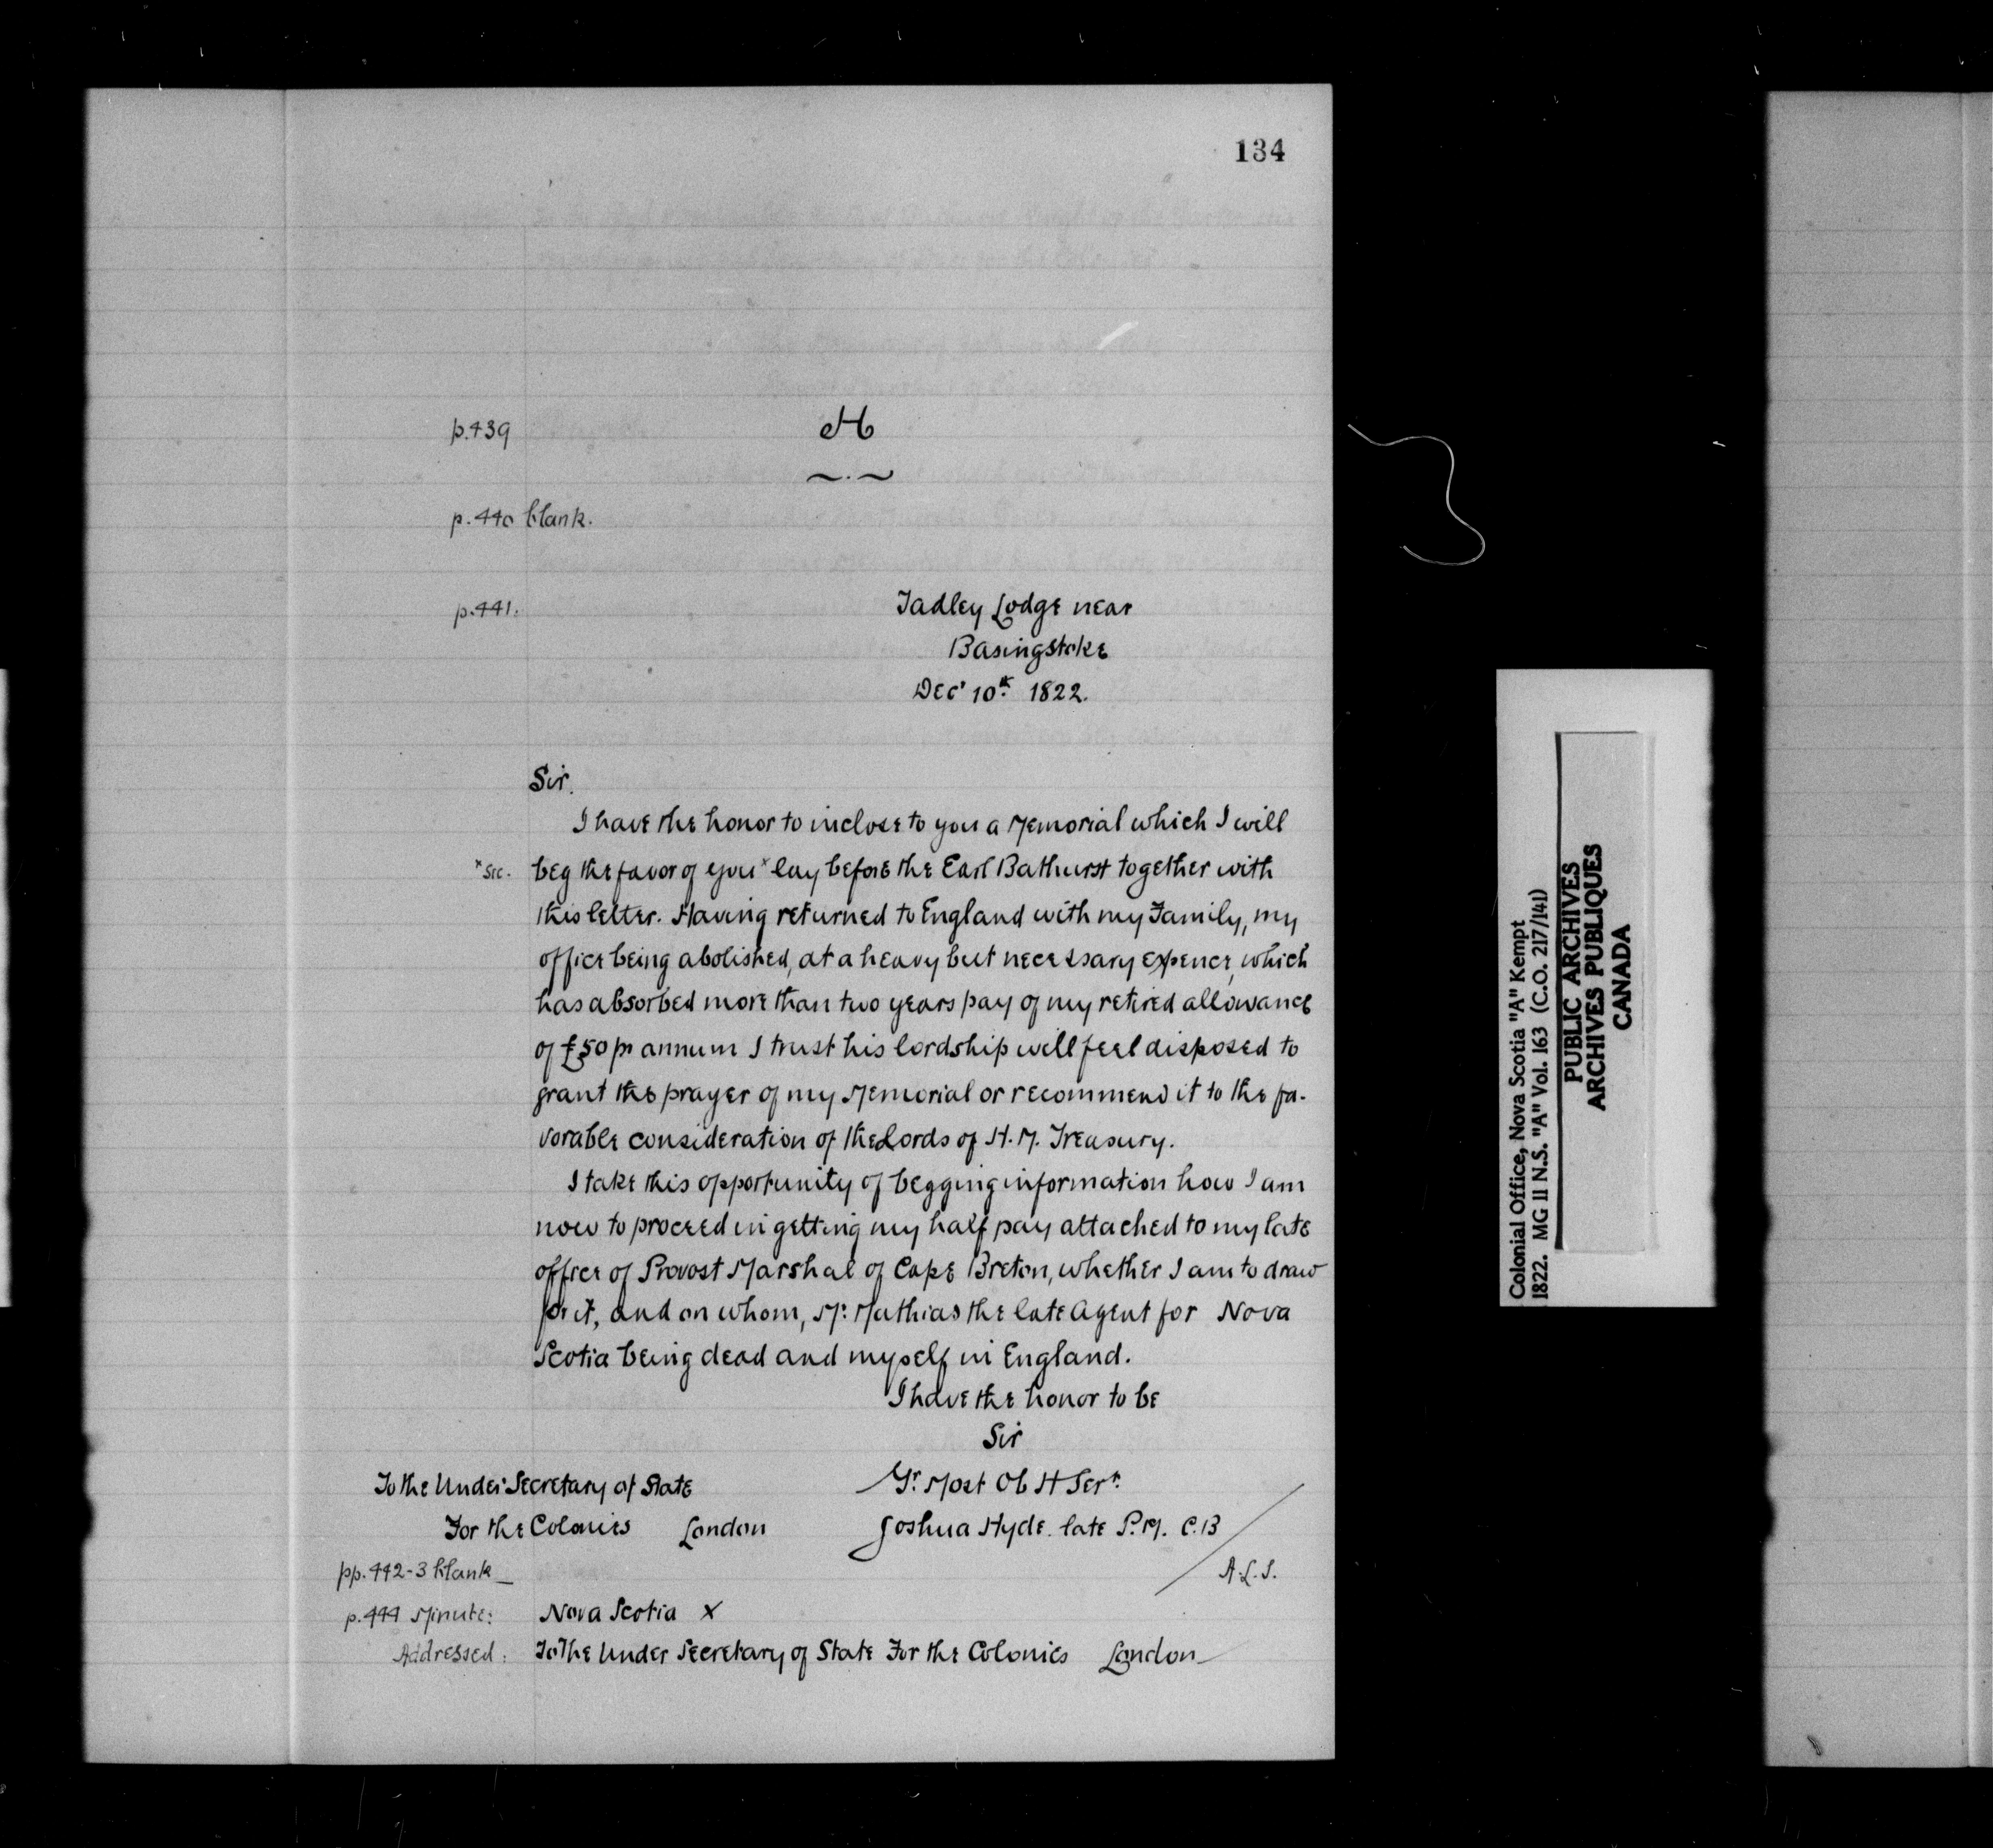 134
p.439 H
p.440 blank.
p.441. Tadley Lodge near
Basingstoke
Decr 10th 1822.
Sir.
I have the honor to inclose to you a Memorial which I will
x sic. beg the favor of you x lay before the Earl Bathurst together with
this letter. Having returned to England with my Family, my
office being abolished, at a heavy but necessary expence, which
has absorbed more than two years pay of my retired allowance
of £50 pr annum I trust his lordship will feel disposed to
grant the prayer of my Memorial or recommend it to the fa-
vorable consideration of the Lords of H.M. Treasury.
I take this opportunity of begging information how I am
now to proceed in getting my half pay attached to my late
office of Provost Marshal of Cape Breton, whether I am to draw
for it, and on whom, Mr. Mathias the late Agent for Nova
Scotia being dead and myself in England.
I have the honor to be
Sir
To the Under Secretary of State Yr. Most Ob H Sert.
For the Colonies London Joshua Hyde. late P.M. C.B
pp.442-3 blank_ A.L.S.
p.444 Minute: Nova Scotia X
Addressed: To The Under Secretary of State For the Colonies London
Colonial Office, Nova Scotia "A" Kempt
1822. MG 11 N.S. "A" Vol. 163 (C.O. 217/141)
PUBLIC ARCHIVES
ARCHIVES PUBLIQUES
CANADA